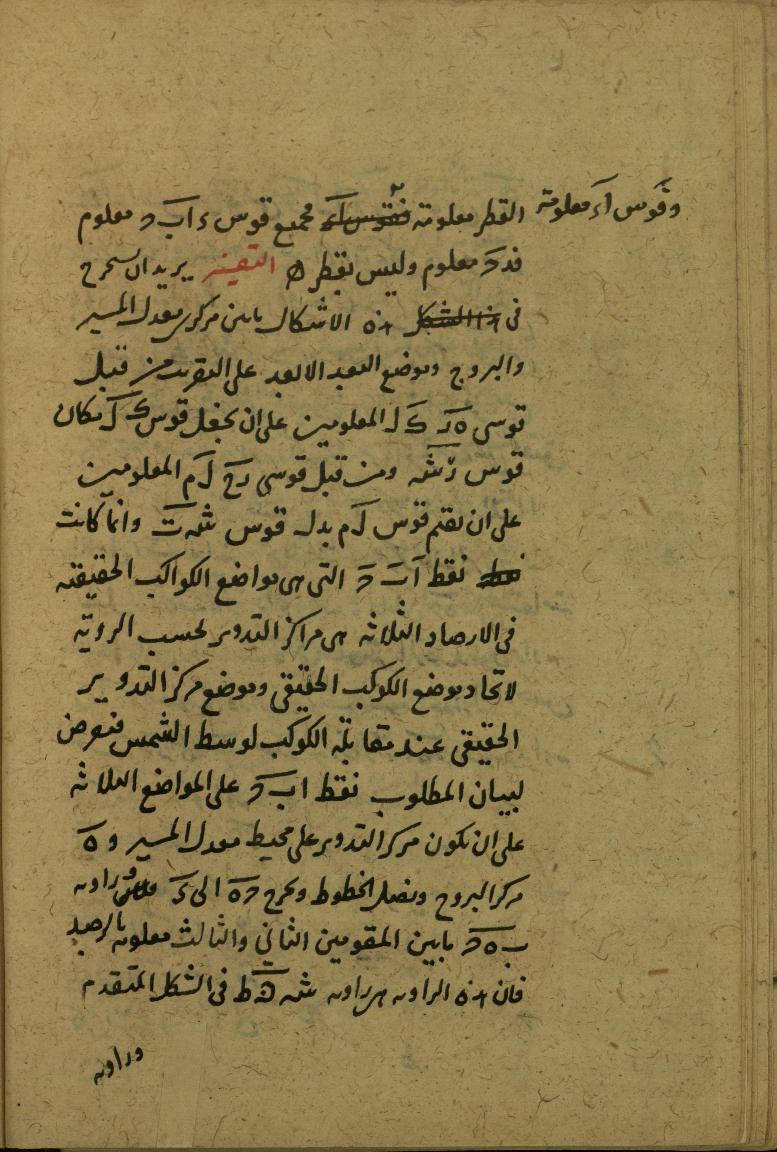 وقوس آء معلومة
القطر معلومة فقوس آء فجميع قوس ء اب د معلوم
فدء معلوم وليس بقطر ه التفسير يريد ان يستخرج
فى هذا الشكل هذه الاشكال ما بين مركزى معدل المسير
والبروج وموضع البعد الابعد على التقريب من قبل
قوسى ن ك ل المعلومين على ان يجعل قوس ك ل مكان
قوس ش ومن قبل قوسى ل م المعلومين
على ان يقيم قوس ل م بدل قوس ش ت وانما كانت
نقط نقط ا ب د التى هى مواضع الكواكب الحقيقية
فى الارصاد الثلاثة هى مراكز التدوير بحسب الروية
لاتحاد موضع الكوكب الحقيقى وموضع مركز التدوير
الحقيقى عند مقابلة الكوكب لوسط الشمس فنفرض
لبيان المطلوب نقط ا ب د على المواضع الثلاثة
على ان يكون مركز التدوير على محيط معدل المسير و ه
مركز البروج ونصل الخطوط ونخرج د ه الى ء وزاوية
ب ه د ما بين المقومين الثانى والثالث معلومة بالرصد
فان هذه الزاوية هى زاوية ش ه ط فى الشكل المتقدم
وزاوية